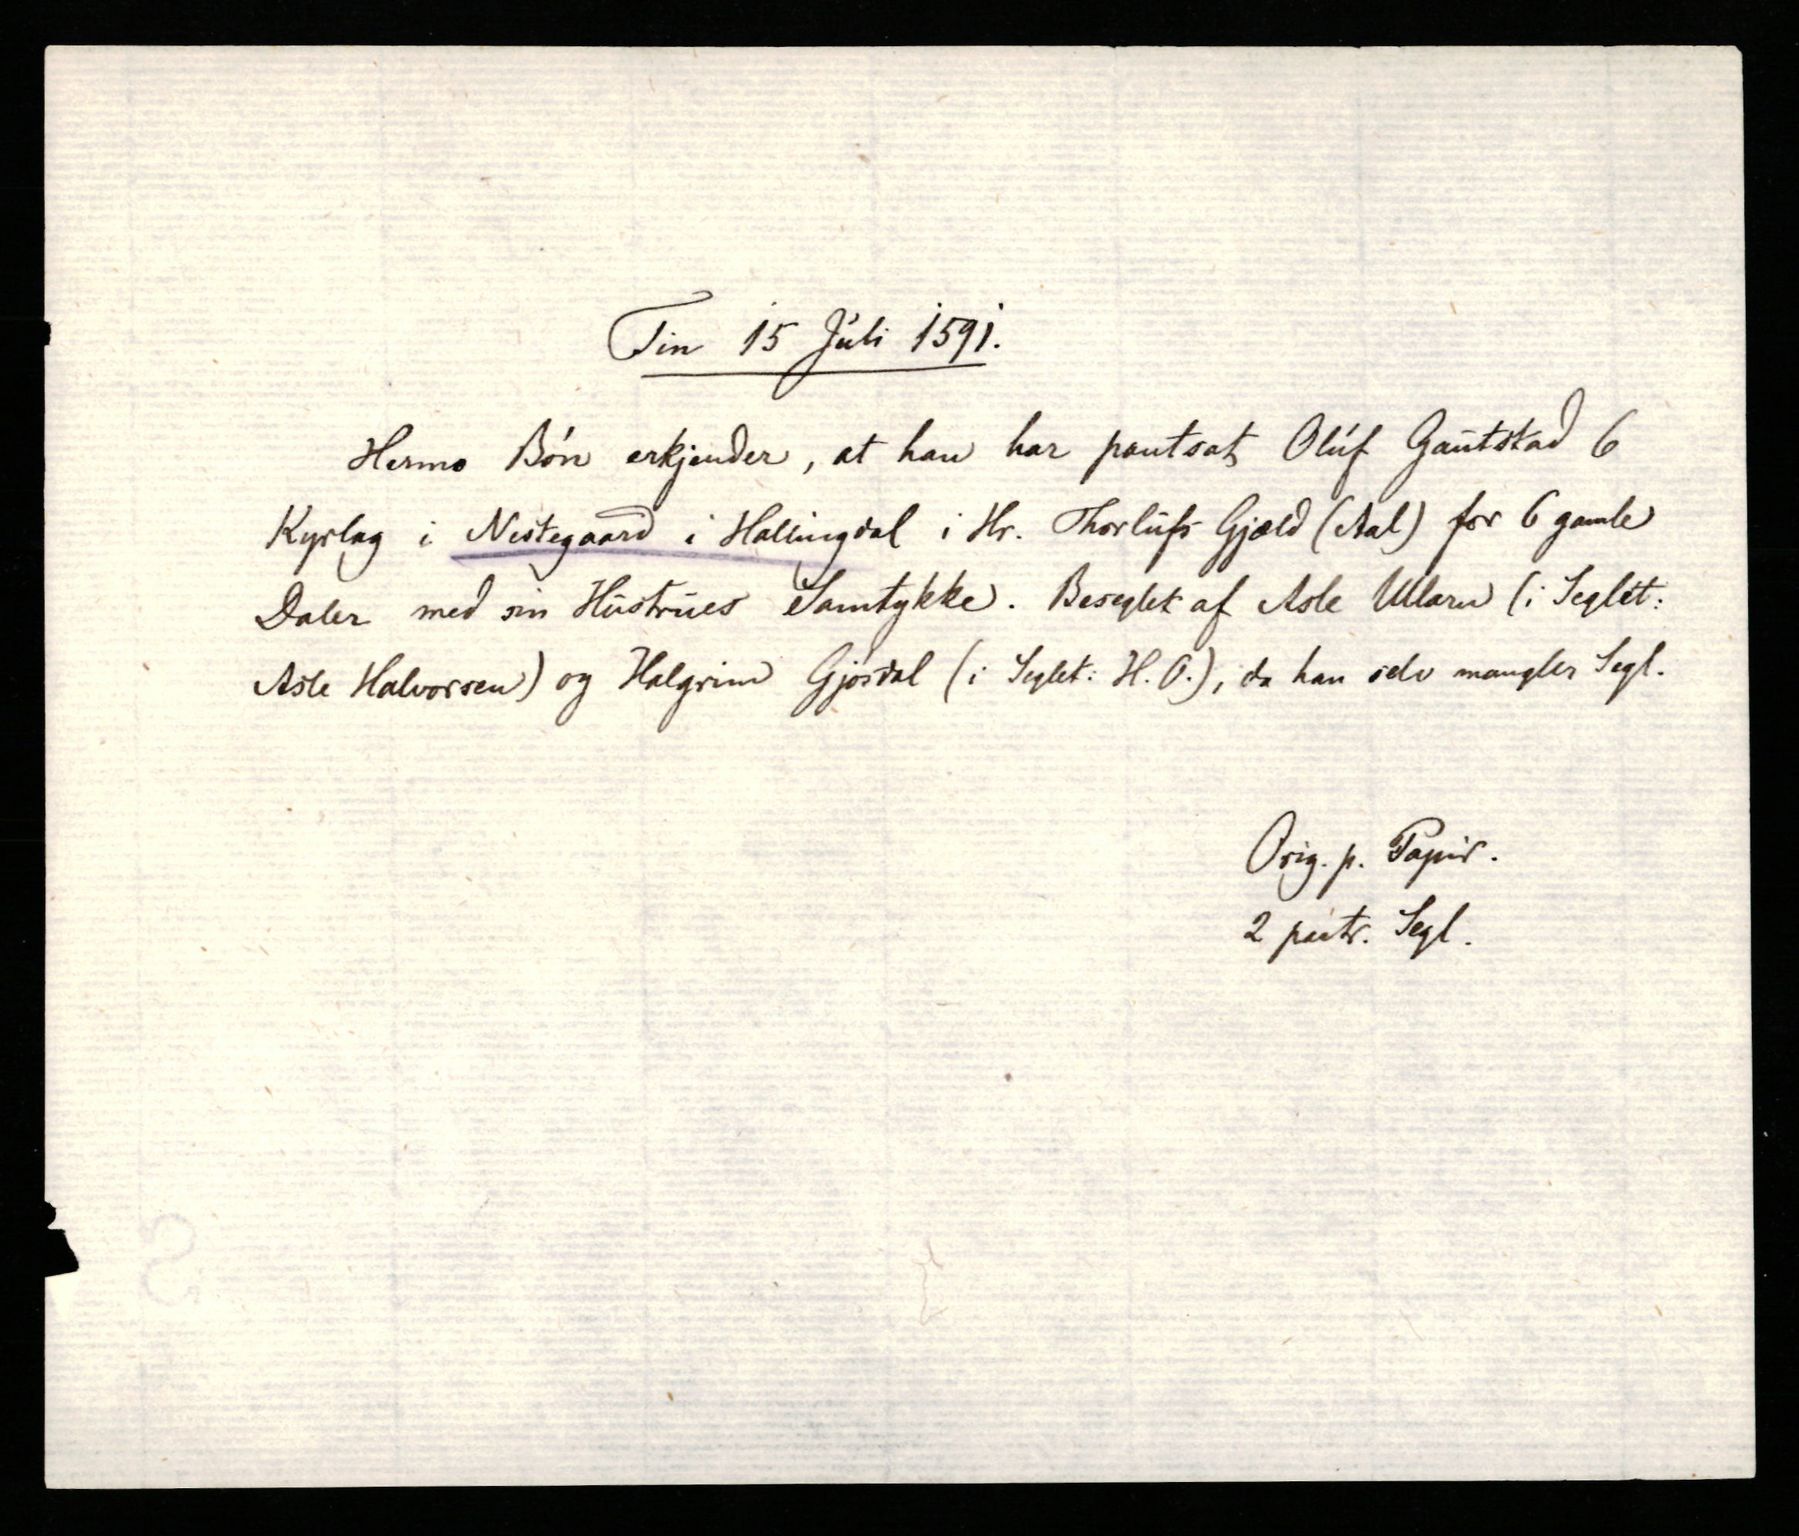 Tin 15 Juli 1591.
Hermo Bøn erkjender, at han har pantsat Oluf Gautstad 6
Kyrlag i Nestegaard i Hallingdal i Hr. Thorlufs Gjæld (Aal) for 6 gamle
Daler med sin Hustrues Samtykke. Beseglet af Asle Ullarn (i Seglet:
Asle Halvorsen) og Halgrim Gjøsdal (i Seglet: H. O.), da han selv mangler Segl.
Orig. p. Papir.
2 paatr. Segl.